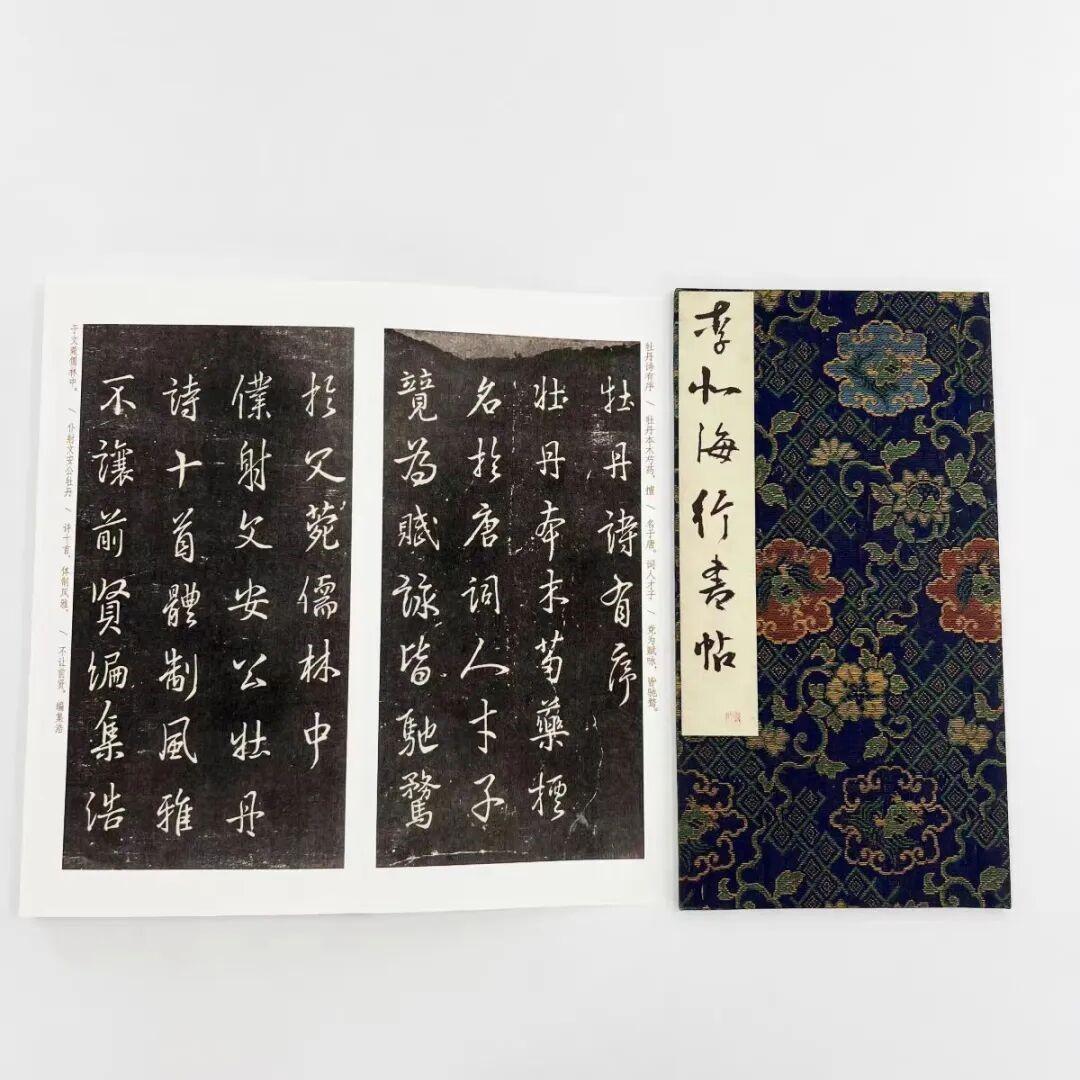 牡丹詩有序
牡丹本木芍藥擅
名於唐詞人才子
競為賦詠皆馳騖
於文菀儒林中
僕射文安公牡丹
詩十首體制風雅
不讓前賢編集浩
牡丹诗有序 / 牡丹本木芍药，擅 / 名于唐。词人才子 / 竞为赋咏，皆驰骛。
于文菀儒林中。 / 仆射文安公牡丹 / 诗十首，体制风雅， / 不让前贤。编集浩
李北海行書帖